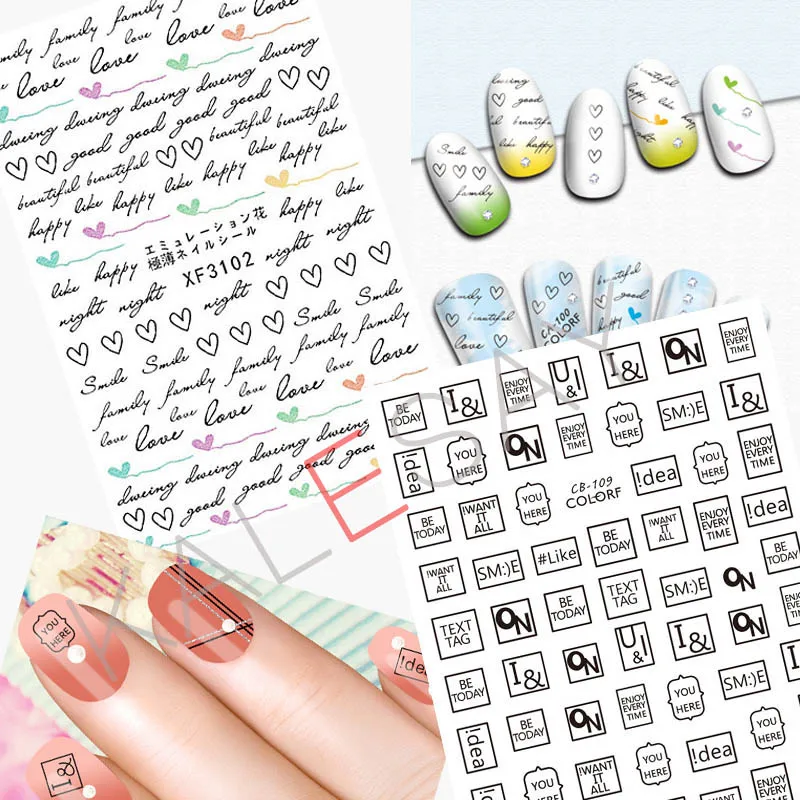 family family family family
love love love love love
love love love love
dweing dweing dweing dweing
good good good good
beautiful beautiful beautiful beautiful
happy like happy like happy like happy
エミュレーション花
極薄ネイルシール
XF3102
like happy happy like
night night night night
Smile Smile Smile Smile
family family family family
love love love love
love love love love
dweing dweing dweing dweing
good good good good
dweing
good
beautiful
like happy
Smile
family
beautiful
like happy
family
beautiful
love
CA-100
COLORF
beautiful
good
happy
KALESAY
BE TODAY
I&
ENJOY EVERY TIME
U&I
I&
ON
ENJOY EVERY TIME
!dea
YOU HERE
ON
ENJOY EVERY TIME
YOU HERE
SM:)E
I&
BE TODAY
IWANT IT ALL
YOU HERE
CB-109
COLORF
!dea
YOU HERE
ENJOY EVERY TIME
IWANT IT ALL
SM:)E
#Like
BE TODAY
IWANT IT ALL
ENJOY EVERY TIME
!dea
TEXT TAG
ON
BE TODAY
TEXT TAG
SM:)E
ON
BE TODAY
I&
ON
U&I
I&
ON
TEXT TAG
!dea
BE TODAY
ON
ENJOY EVERY TIME
YOU HERE
SM:)E
YOU HERE
IWANT IT ALL
YOU HERE
!dea
ENJOY EVERY TIME
YOU HERE
!dea
I&